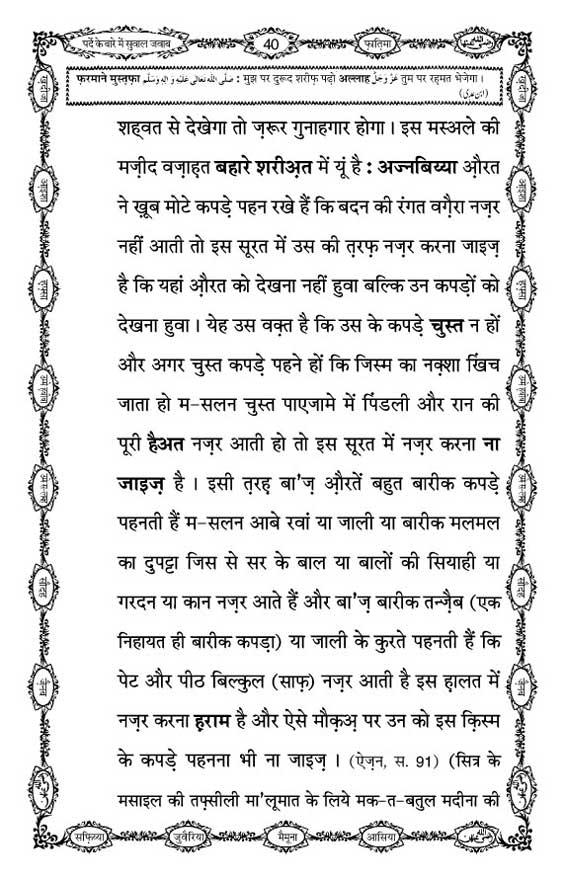 पर्दे के बारे में सुवाल जवाब
40
फ़ातिमा
फ़रमाने मुस्तफ़ा صَلَّى اللهُ تَعَالٰى عَلَيْهِ وَاٰلِهٖ وَسَلَّم : मुझ पर दुरूद शरीफ़ पढ़ो अल्लाह عَزَّ وَجَلَّ तुम पर रहमत भेजेगा ।
(ابن عدی)
शह्वत से देखेगा तो ज़रूर गुनाहगार होगा । इस मस्अले की
मज़ीद वज़ाह़त बहारे शरीअ़त में यूं है : अज्नबिय्या औ़रत
ने ख़ूब मोटे कपड़े पहन रखे हैं कि बदन की रंगत वग़ैरा नज़र
नहीं आती तो इस सूरत में उस की त़रफ़ नज़र करना जाइज़
है कि यहां औ़रत को देखना नहीं हुवा बल्कि उन कपड़ों को
देखना हुवा । येह उस वक़्त है कि उस के कपड़े चुस्त न हों
और अगर चुस्त कपड़े पहने हों कि जिस्म का नक़्शा खिंच
जाता हो म-सलन चुस्त पाएजामे में पिंडली और रान की
पूरी हैअत नज़र आती हो तो इस सूरत में नज़र करना ना
जाइज़ है । इसी त़रह़ बा'ज़ औ़रतें बहुत बारीक कपड़े
पहनती हैं म-सलन आबे रवां या जाली या बारीक मलमल
का दुपट्टा जिस से सर के बाल या बालों की सियाही या
गरदन या कान नज़र आते हैं और बा'ज़ बारीक तन्ज़ैब (एक
निहायत ही बारीक कपड़ा) या जाली के कुरते पहनती हैं कि
पेट और पीठ बिल्कुल (साफ़) नज़र आती है इस ह़ालत में
नज़र करना ह़राम है और ऐसे मौक़अ़ पर उन को इस क़िस्म
के कपड़े पहनना भी ना जाइज़ । (ऐज़न, स. 91) (सित्र के
मसाइल की तफ़्सीली मा'लूमात के लिये मक-त-बतुल मदीना की
सफ़िय्या
जुवैरिया
मैमूना
आसिया